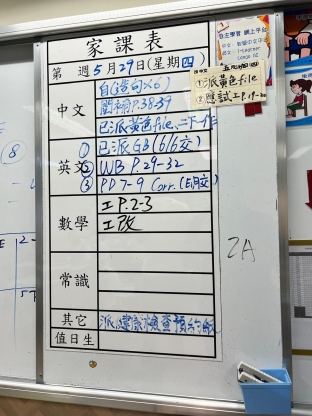 家課表
第 週5月29日(星期四)
中文
自G造句x6)
閱補P.38-39
已派黃色file、
英文
① 已派GB(6/6交)
② WB P.29-32
③ PD7-9 Corr.(明交)
數學
工P.2-3
工改
常識
其它
派健康檢查預約紙
值日生
自主學習 網上平台
①派黃色file
②應試工P.19-20
2A
8